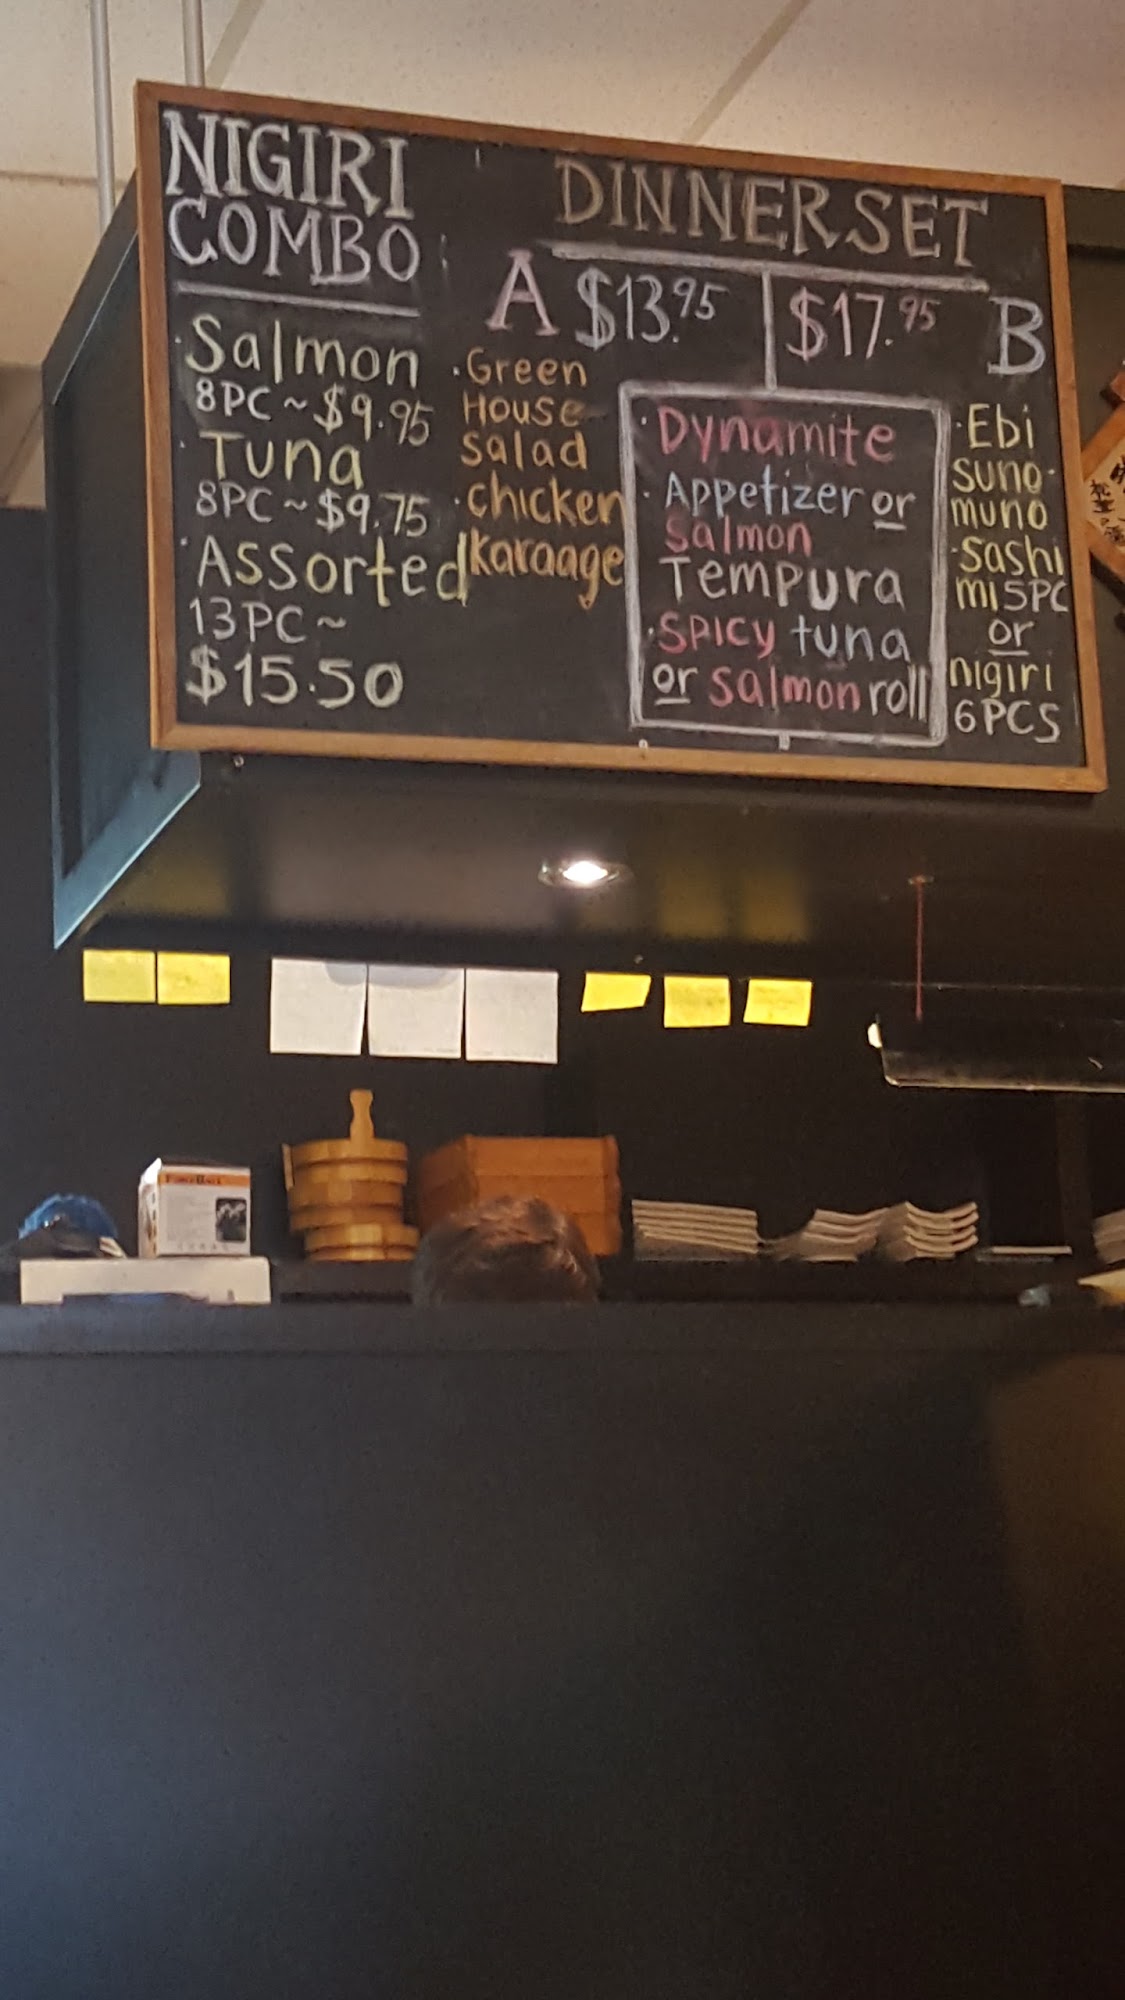 NIGIRI
COMBO
· Salmon
8PC ~ $9.95
· Tuna
8PC ~ $9.75
· Assorted
13PC ~
$15.50
DINNER SET
A $13.95
$17.95 B
· Green
House
Salad
· chicken
Karaage
· Dynamite
· Appetizer or
Salmon
Tempura
· Spicy tuna
or Salmon roll
· Ebi
suno
muno
· Sashi
mi 5PC
or
nigiri
6PCS